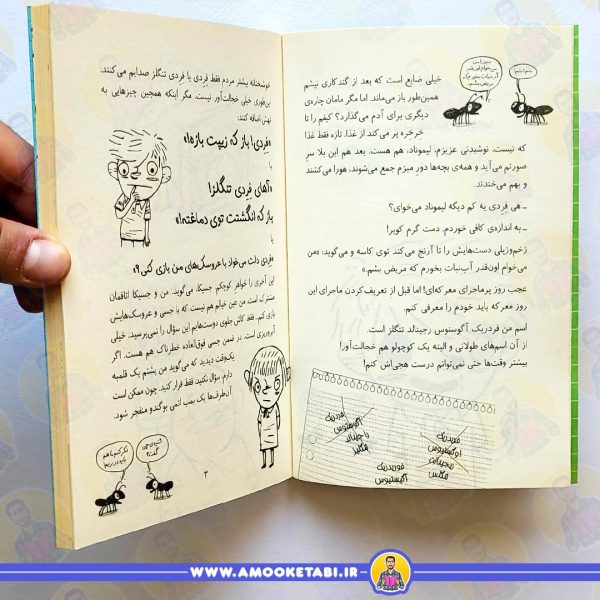 خیلی ضایع است که بعد از گندکاری نیشم
همین‌طور باز می‌ماند. اما مگر مامان چاره‌ی
دیگری برای آدم می‌گذارد؟ کیفم را تا
خرخره پر می‌کند از غذا. تازه فقط غذا
که نیست، نوشیدنی عزیزم، لیموناد، هم هست. بعد هم این بلا سر
صورتم می‌آید و همه‌ی بچه‌ها دور میزم جمع می‌شوند، هورا می‌کشند
و بهم می‌خندند.
ـ هی فِردی یه کم دیگه لیموناد می‌خوای؟
ـ به اندازه‌ی کافی خوردم. دست گرم کوپر!
زخم‌وزیلی دست‌هایش را تا آرنج می‌کند توی کاسه و می‌گوید: «من
می‌خوام اون‌قدر آب‌نبات بخورم که مریض بشم.»
عجب روز پرماجرای معرکه‌ای! اما قبل از تعریف کردن ماجرای این
روز معرکه باید خودم را معرفی کنم.
اسم من فردریک آگوستوس رجینالد تنگلز است.
از آن اسم‌های طولانی و البته یک کوچولو هم خجالت‌آور!
بیشتر وقت‌ها حتی نمی‌توانم درست هجی‌اش کنم!
فردریک
آگوستوس
فردریک
خوشبختانه بیشتر مردم فقط فِردی یا فِردی تنگلز صدایم می‌کنند.
این‌طوری خیلی خجالت‌آور نیست. مگر اینکه همچین چیزهایی به
تهش اضافه کنند:
«فِردی! باز که زیپت بازه!»
یا
«آهای فِردی تنگلز!
باز که انگشتت توی دماغته!»
یا
«فِردی دلت می‌خواد با عروسک‌های من بازی کنی؟»
این آخری را خواهر کوچکم، جسیکا، می‌گوید. من و جسیکا اتاقمان
مشترک است. من عین خیالم هم نیست که با جسی و عروسک‌هایش
بازی کنم. فقط کاش جلوی دوست‌هایم این سؤال را نمی‌پرسید. خیلی
آبروریزی است. در ضمن جسی فوق‌العاده خطرناک هم هست. اگر
یک‌وقت دیدید که می‌گوید من پشتم یک قلمبه
دارم، سؤال نکنید فقط فرار کنید. چون ممکن است
آن‌طرف‌ها یک بمب اتمی بوگندو منفجر شود.
۳
WWW.AMOOKETABI.IR